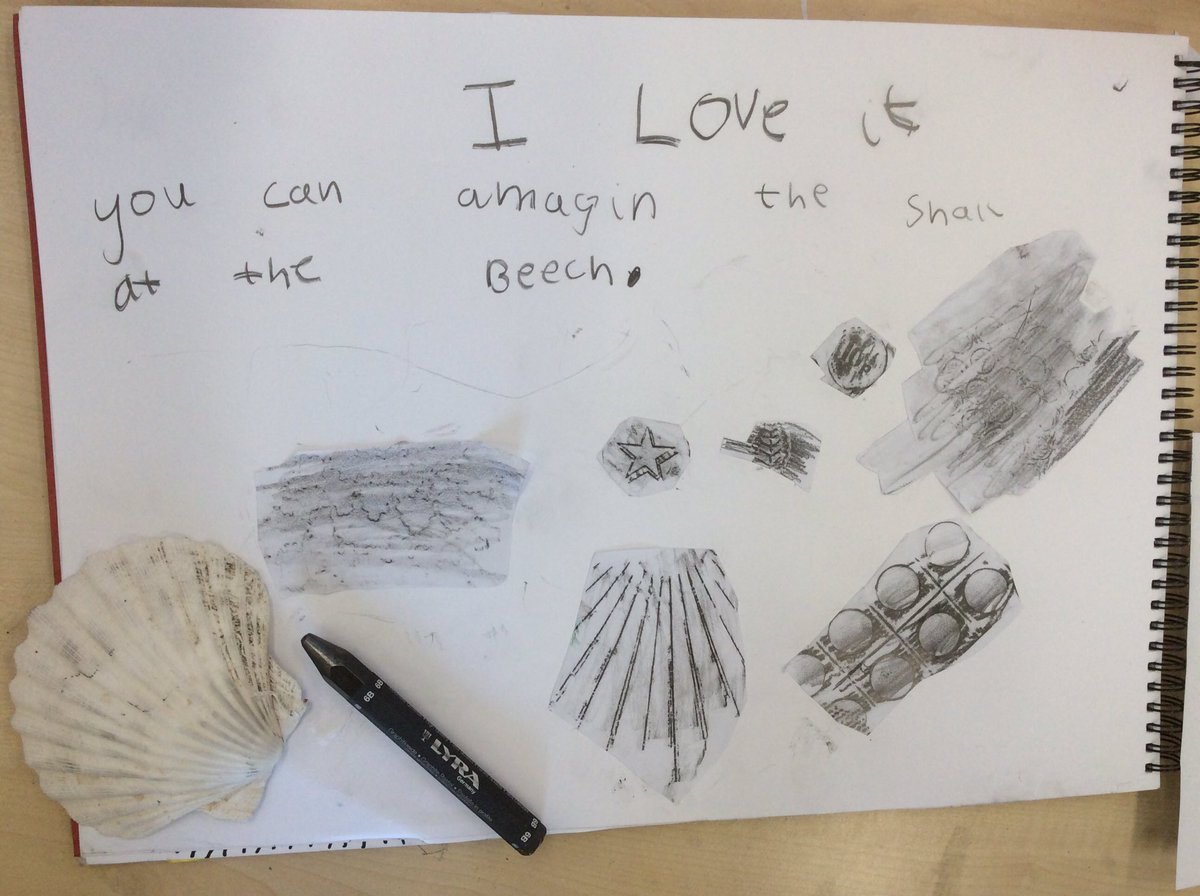 I Love it
you can amagin the Shall
at the Beech.
6B
6B
LYRA
Germany
6B
6B